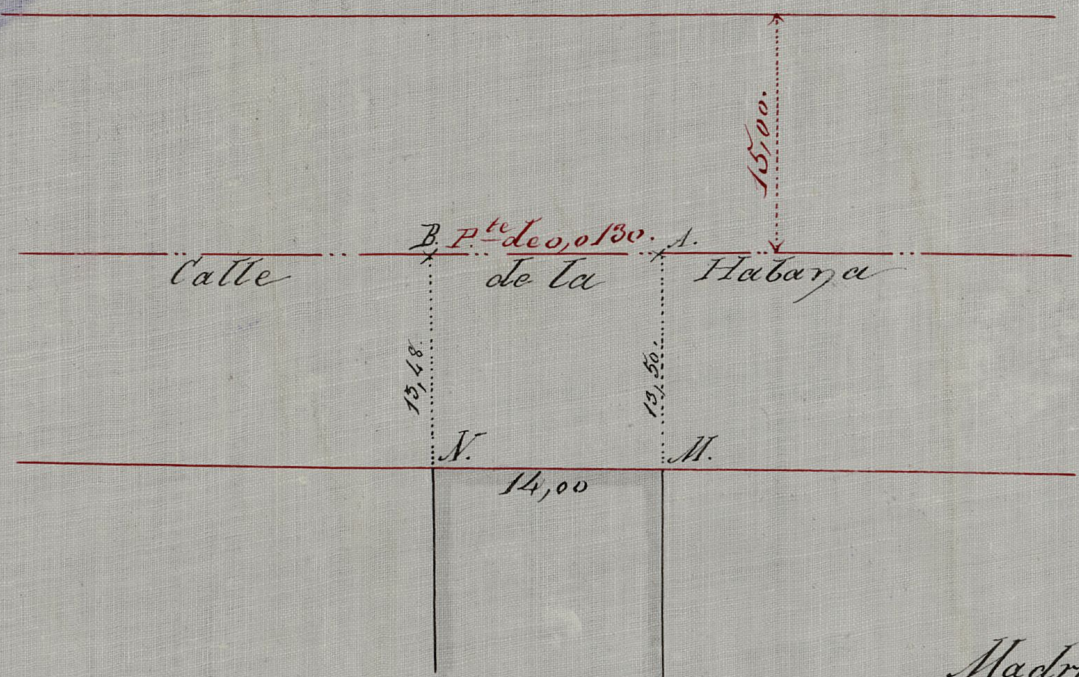 15,00.
B. P.te de 0,0130. A.
Calle de la Habana
13,48.
13,50.
N. M.
14,00
Madr